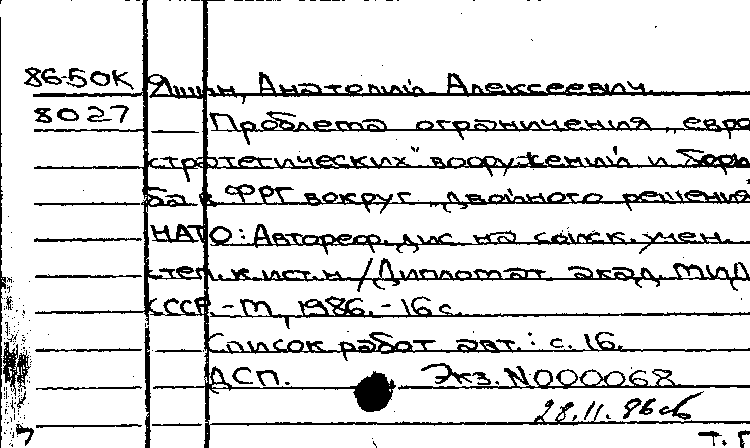 86-50К Яшин, Анатолий Алексеевич.
8027 Проблема ограничения „евро
стратегических" вооружений и борь
ба в ФРГ вокруг „двойного решения"
НАТО: Автореф. дис. на соиск. учен.
степ. к. ист. н. /Дипломат. акад. МИД
СССР. - М., 1986. - 16 с.
Список работ авт.: с. 16.
ДСП. Экз. N000068
28.11.86